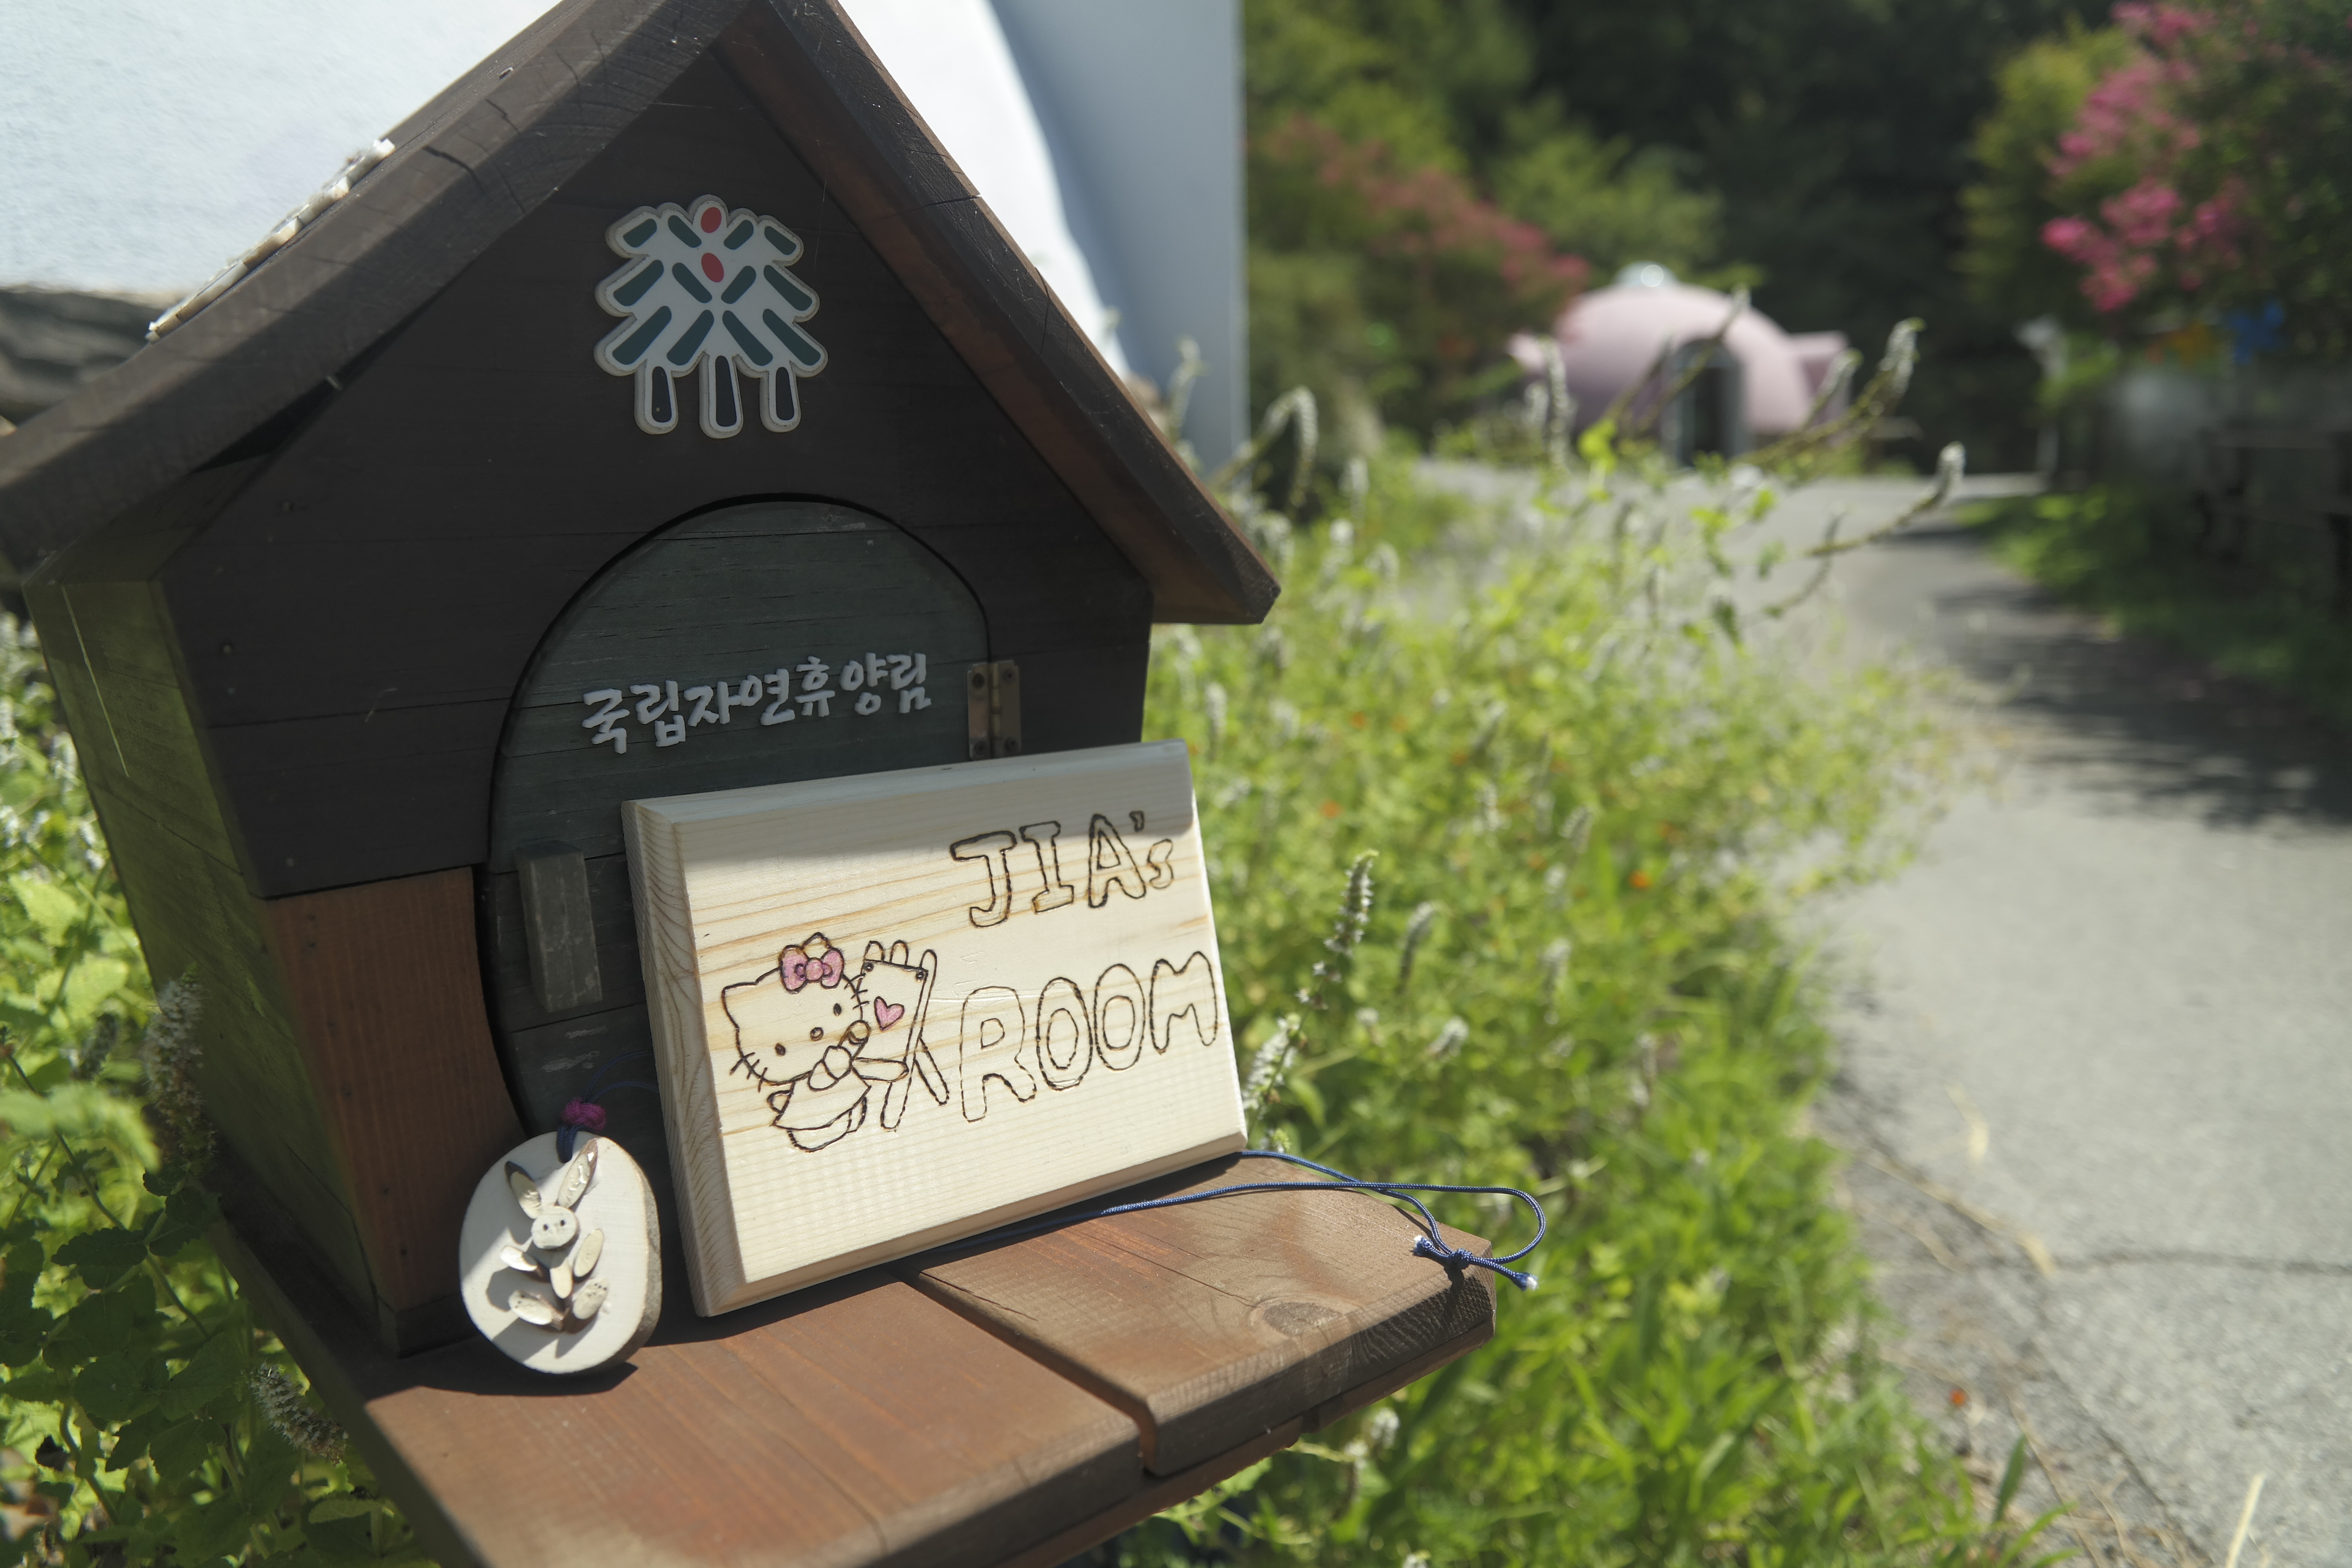 국립자연휴양림
JIA's
ROOM